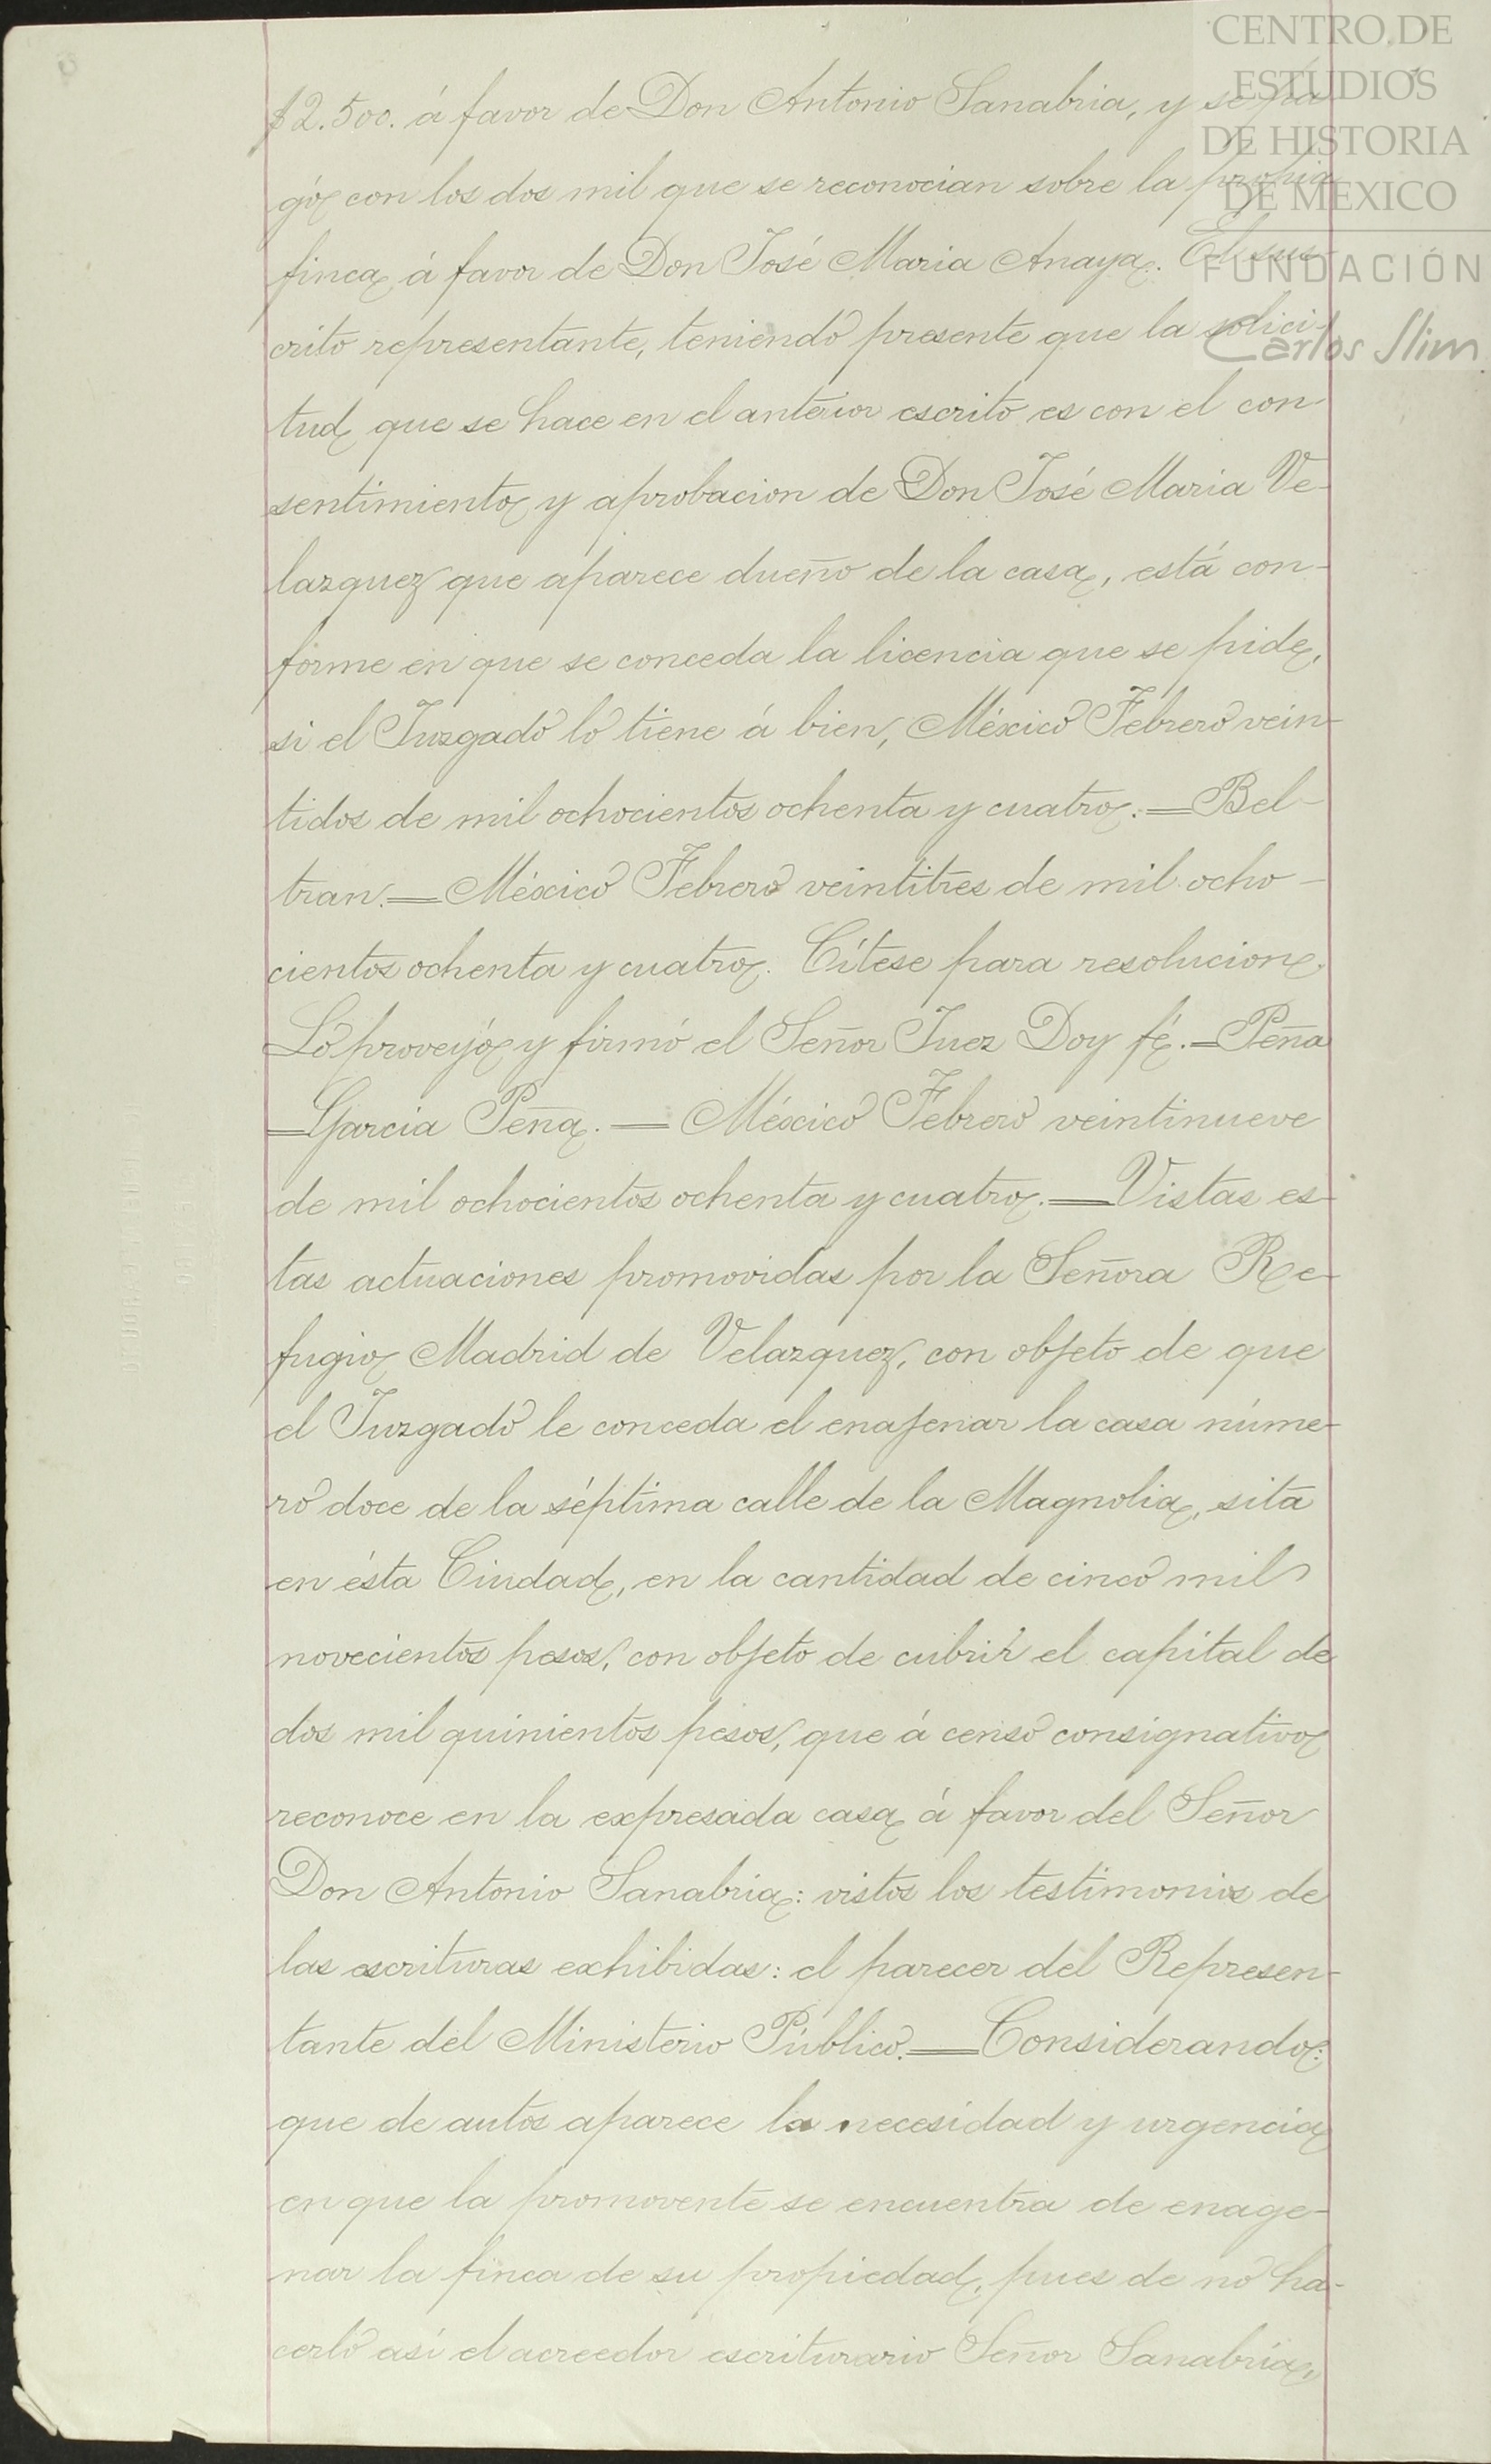 CENTRO DE
ESTUDIOS
DE HISTORIA
DE MEXICO
FUNDACIÓN
Carlos Slim
$2.500. á favor de Don Antonio Sanabria, y se pa
gó con los dos mil que se reconocian sobre la propia
finca á favor de Don José Maria Anaya. El sus
crito representante, teniendo presente que la solici-
tud que se hace en el anterior escrito es con el con-
sentimiento y aprobacion de Don José Maria Ve-
lazquez que aparece dueño de la casa, está con-
forme en que se conceda la licencia que se pide,
si el Juzgado lo tiene á bien, México Febrero vein-
tidos de mil ochocientos ochenta y cuatro.=Bel-
tran.=México Febrero veintitres de mil ocho-
cientos ochenta y cuatro. Cítese para resolucion.
Lo proveyó y firmó el Señor Juez Doy fé.=Peña
=Garcia Peña.=México Febrero veintinueve
de mil ochocientos ochenta y cuatro.=Vistas es-
tas actuaciones promovidas por la Señora Re-
fugio Madrid de Velazquez, con objeto de que
el Juzgado le conceda el enajenar la casa núme-
ro doce de la séptima calle de la Magnolia, sita
en ésta Ciudad, en la cantidad de cinco mil
novecientos pesos, con objeto de cubrir el capital de
dos mil quinientos pesos, que á censo consignativo
reconoce en la expresada casa á favor del Señor
Don Antonio Sanabria: vistos los testimonios de
las escrituras exhibidas: el parecer del Represen-
tante del Ministerio Público.=Considerando:
que de autos aparece la necesidad y urgencia
en que la promovente se encuentra de enage-
nar la finca de su propiedad, pues de no ha-
cerlo así el acreedor escriturario Señor Sanabria,